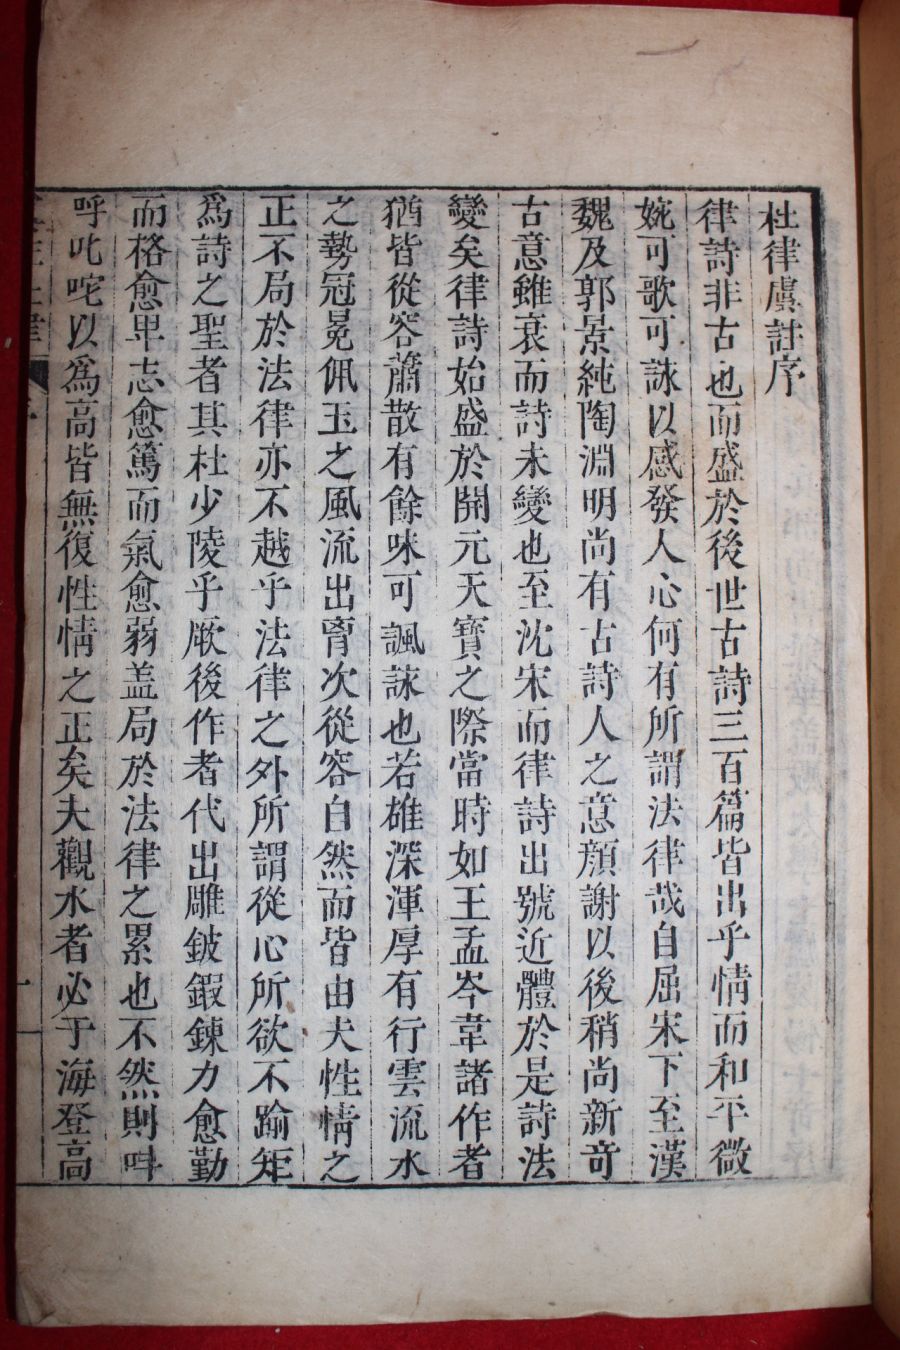 杜律虞註序
律詩非古也而盛於後世古詩三百篇皆出乎情而和平微
婉可歌可詠以感發人心何有所謂法律哉自屈宋下至漢
魏及郭景純陶淵明尚有古詩人之意顔謝以後稍尚新奇
古意雖衰而詩未變也至沈宋而律詩出號近體於是詩法
變矣律詩始盛於開元天寶之際當時如王孟岑韋諸作者
猶皆從容蕭散有餘味可諷詠也若雄深渾厚有行雲流水
之勢冠冕佩玉之風流出胷次從容自然而皆由夫性情之
正不局於法律亦不越乎法律之外所謂從心所欲不踰矩
爲詩之聖者其杜少陵乎厥後作者代出雕鈹鍜鍊力愈勤
而格愈卑志愈篤而氣愈弱盖局於法律之累也不然則呌
呼叱咤以爲高皆無復性情之正矣夫觀水者必于海登高